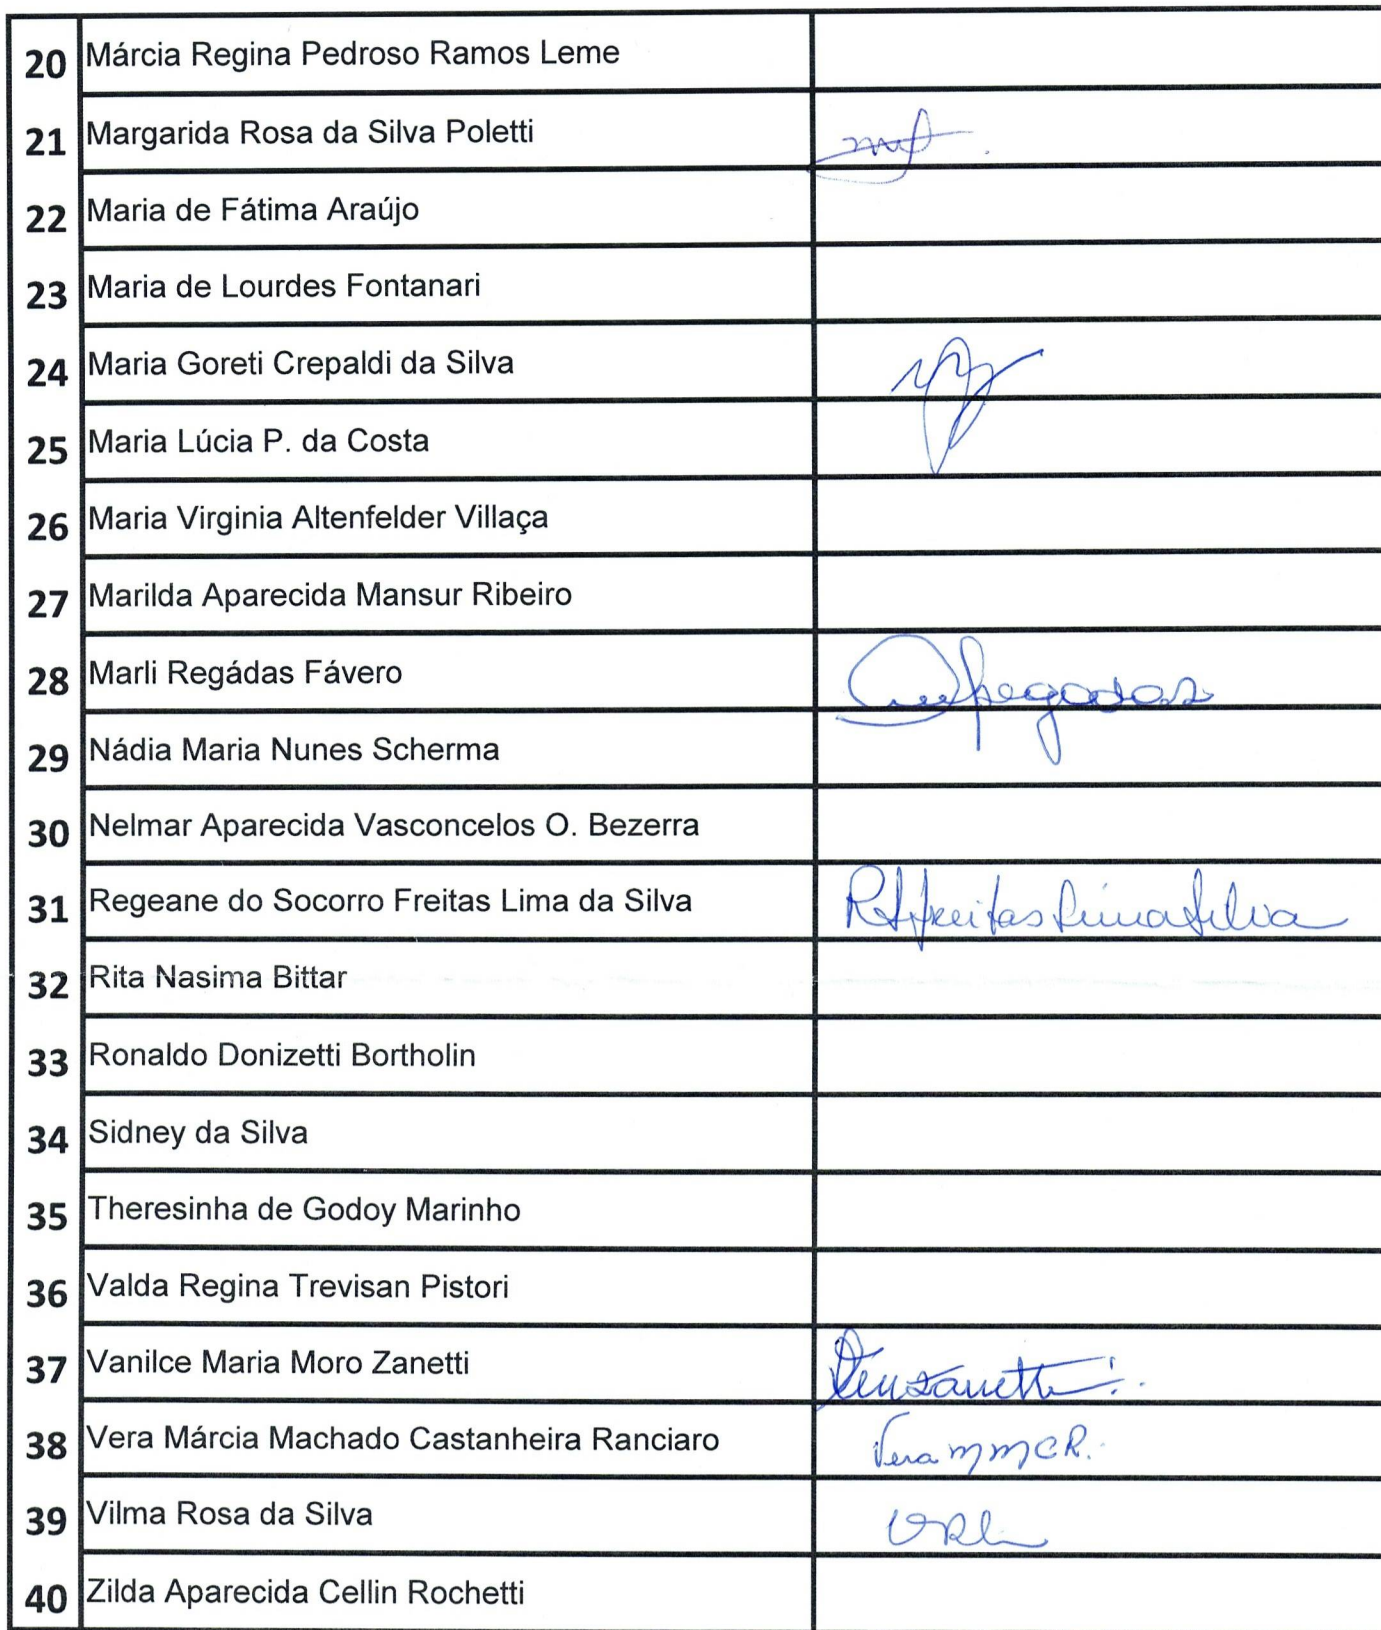 20 Márcia Regina Pedroso Ramos Leme
21 Margarida Rosa da Silva Poletti
22 Maria de Fátima Araújo
23 Maria de Lourdes Fontanari
24 Maria Goreti Crepaldi da Silva
25 Maria Lúcia P. da Costa
26 Maria Virginia Altenfelder Villaça
27 Marilda Aparecida Mansur Ribeiro
28 Marli Regádas Fávero
29 Nádia Maria Nunes Scherma
30 Nelmar Aparecida Vasconcelos O. Bezerra
31 Regeane do Socorro Freitas Lima da Silva RSFreitas Lima Silva
32 Rita Nasima Bittar
33 Ronaldo Donizetti Bortholin
34 Sidney da Silva
35 Theresinha de Godoy Marinho
36 Valda Regina Trevisan Pistori
37 Vanilce Maria Moro Zanetti
38 Vera Márcia Machado Castanheira Ranciaro Vera MMCR.
39 Vilma Rosa da Silva
40 Zilda Aparecida Cellin Rochetti